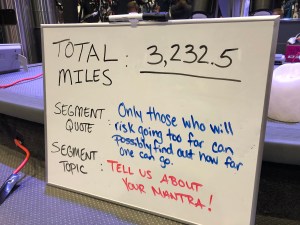 TOTAL MILES : 3,232.5
SEGMENT QUOTE : Only those who will
risk going too far can
possibly find out how far
one can go.
SEGMENT TOPIC : TELL US ABOUT
YOUR MANTRA!